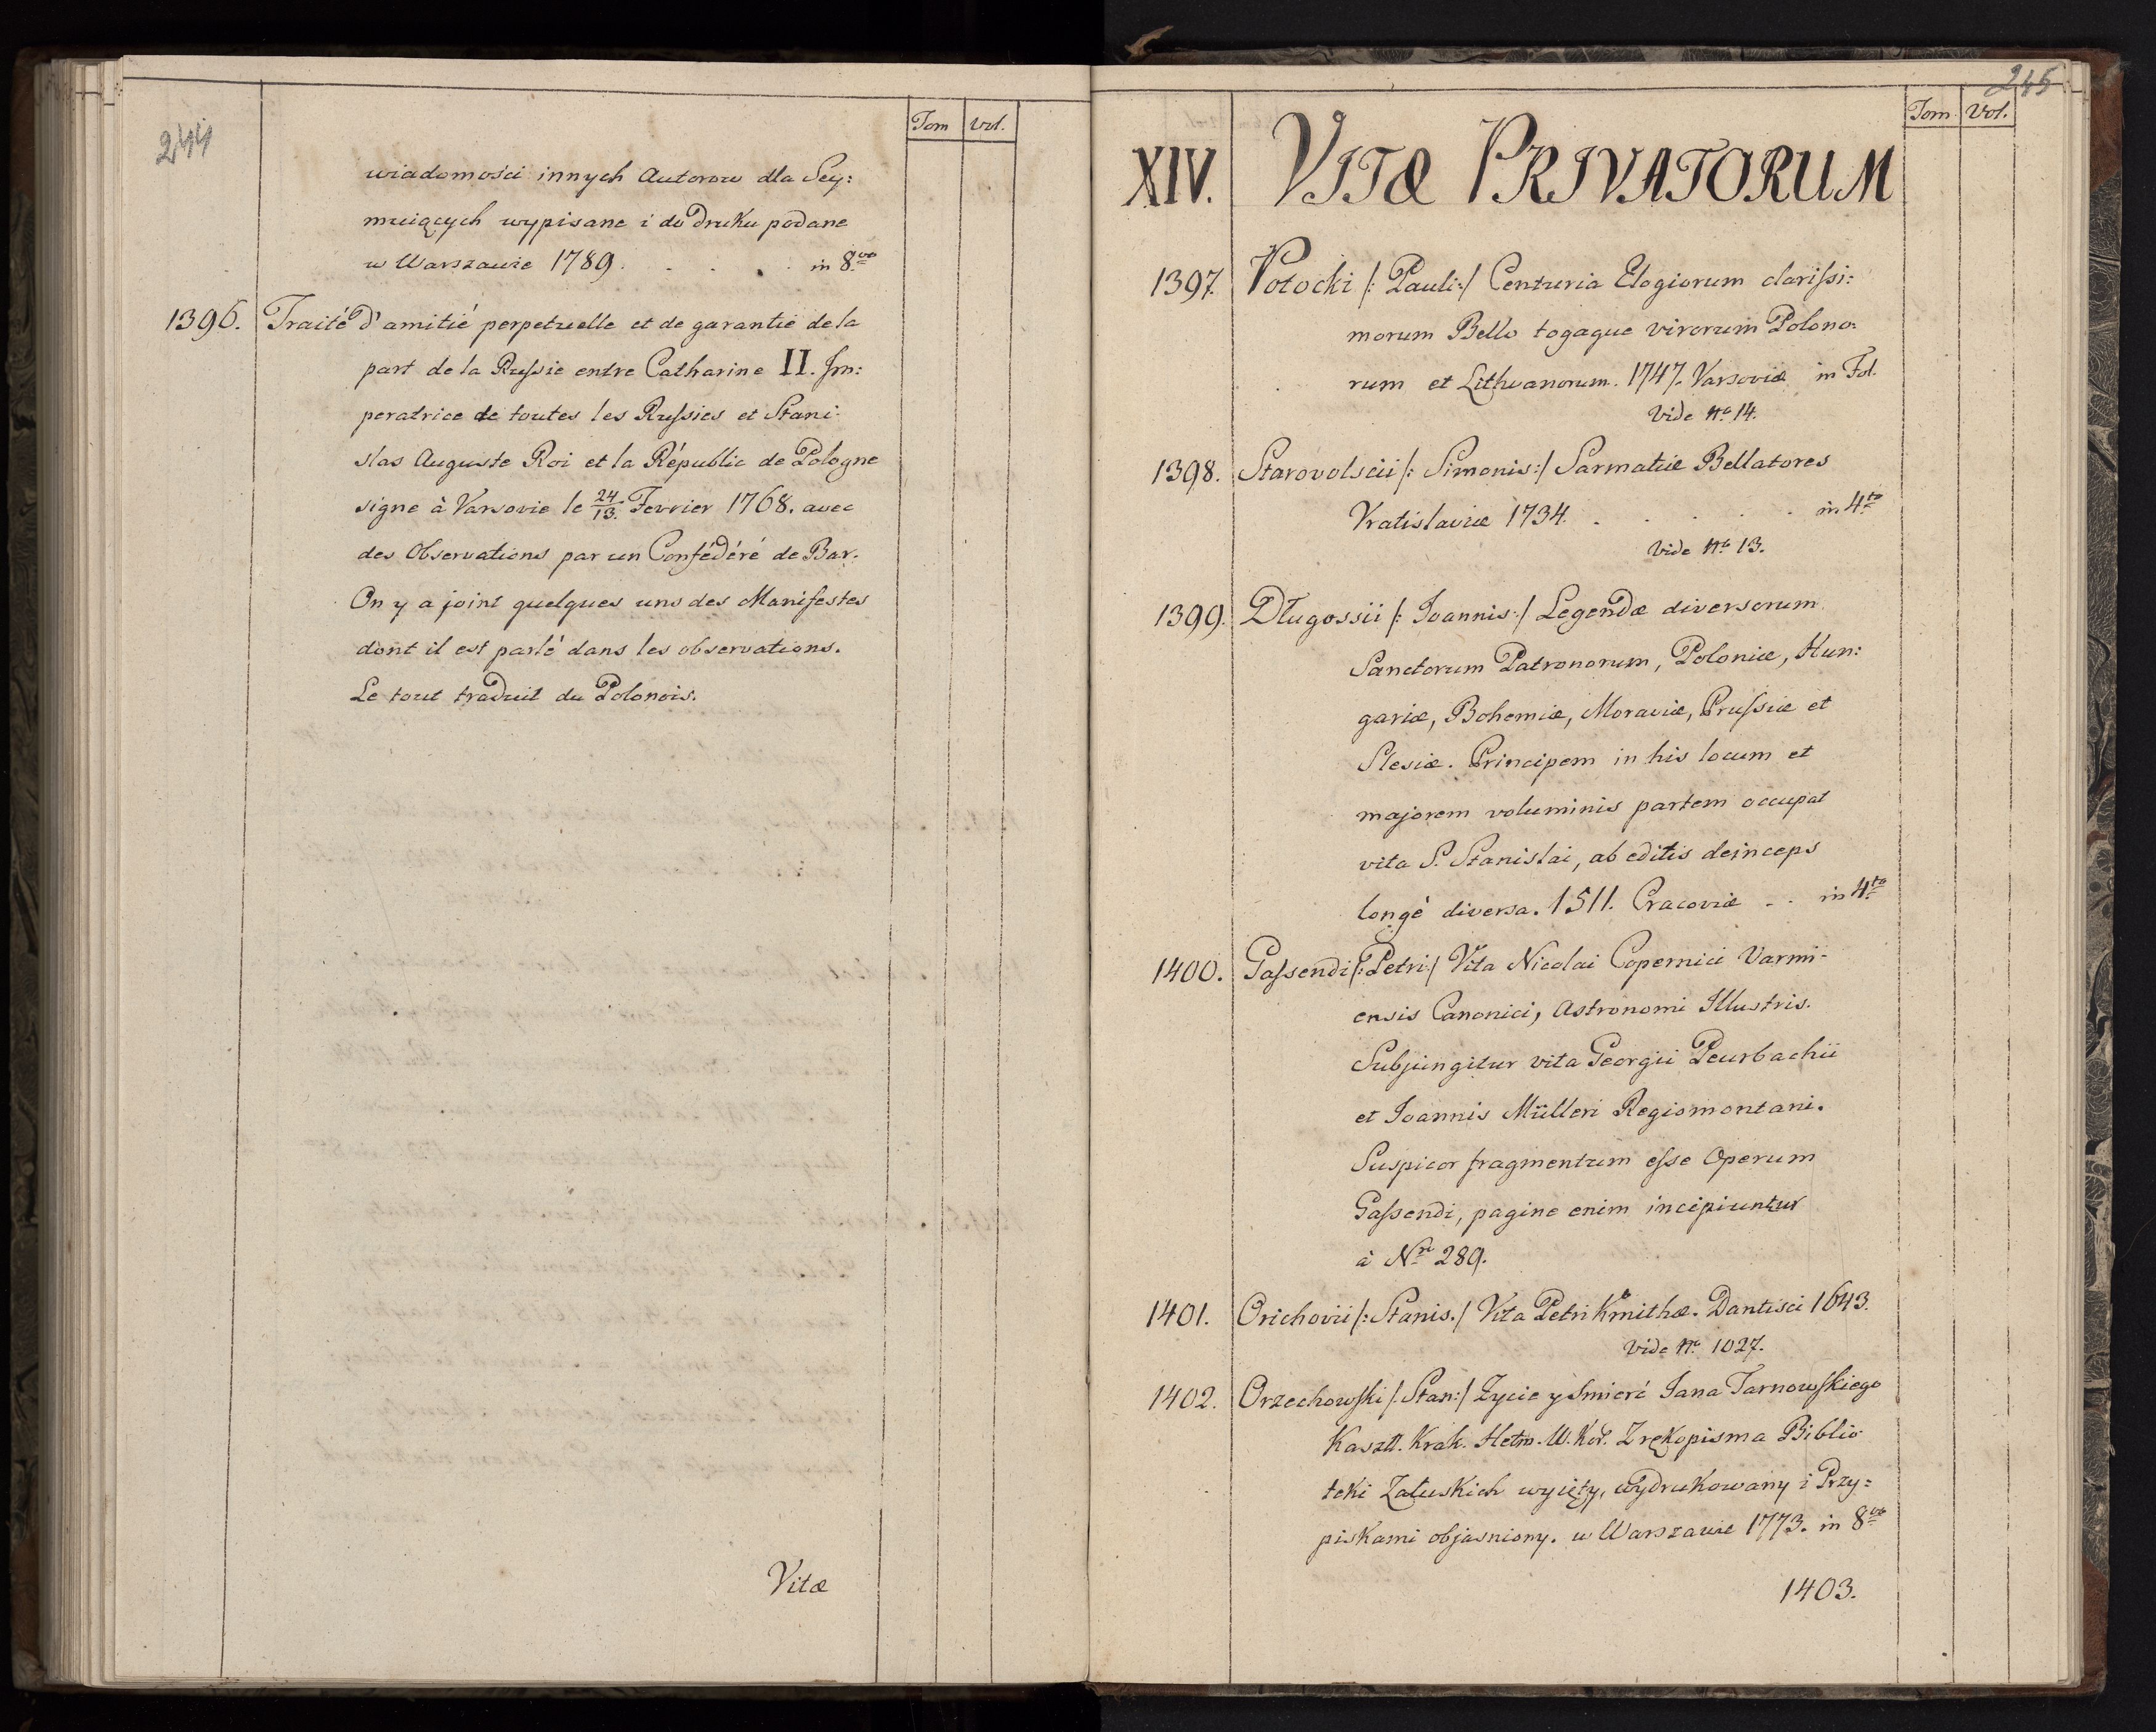 244
Tom Vol.
wiadomości innych Autorow dla Sey:
muiących wypisane i do Druku podane
w Warszawie 1789. . . . . in 8vo
1396. Traité d'amitié perpetuelle et de garantie de la
part de la Russie entre Catharine II. Im:
peratrice de toutes les Russies et Stani-
slas Auguste Roi et la Républic de Pologne
signe à Varsovie le 24/13. Fevrier 1768. avec
des Observations par un Confédéré de Bar.
On y a joint quelques uns des Manifestes
dont il est parlé dans les observations.
Le tout traduit du Polonois.
Vitæ
245
Tom Vol.
XIV. VITÆ PRIVATORUM
1397. Potocki /: Pauli:/ Centuria Elogiorum clarissi:
morum Bello togaque virorum Polono:
rum et Lithuanorum. 1747. Varsoviæ in Fol.
Vide No 14.
1398. Starovolscii /: Simonis:/ Sarmatiæ Bellatores
Vratislaviæ 1734. . . . . . in 4to
Vide No 13.
1399. Długossii /: Ioannis:/ Legendæ diversorum
Sanctorum Patronorum, Poloniæ, Hun:
gariæ, Bohemiæ, Moraviæ, Prussiæ et
Slesiæ. Principem in his locum et
majorem voluminis partem occupat
vita S. Stanislai, ab editis deinceps
longè diversa. 1511. Cracoviæ . . in 4to
1400. Gassendi /: Petri:/ Vita Nicolai Copernici Varmi-
ensis Canonici, Astronomi Illustris.
Subjungitur vita Georgii Peurbachii
et Ioannis Mülleri Regiomontani.
Suspicor fragmentum esse Operum
Gassendi, pagine enim incipiuntur
à Nro 289.
1401. Orichovii /: Stanis./ Vita Petri Kmithæ. Dantisci 1643.
Vide No 1027.
1402. Orzechowski /: Stan:/ Zycie y Smierć Jana Tarnowskiego
Kasztl. Krak. Hetm. W. Kor. Z rękopisma Biblio
teki Załuskich wyięty, wydrukowany i Przy:
piskami objasniony. w Warszawie 1773. in 8vo
1403.